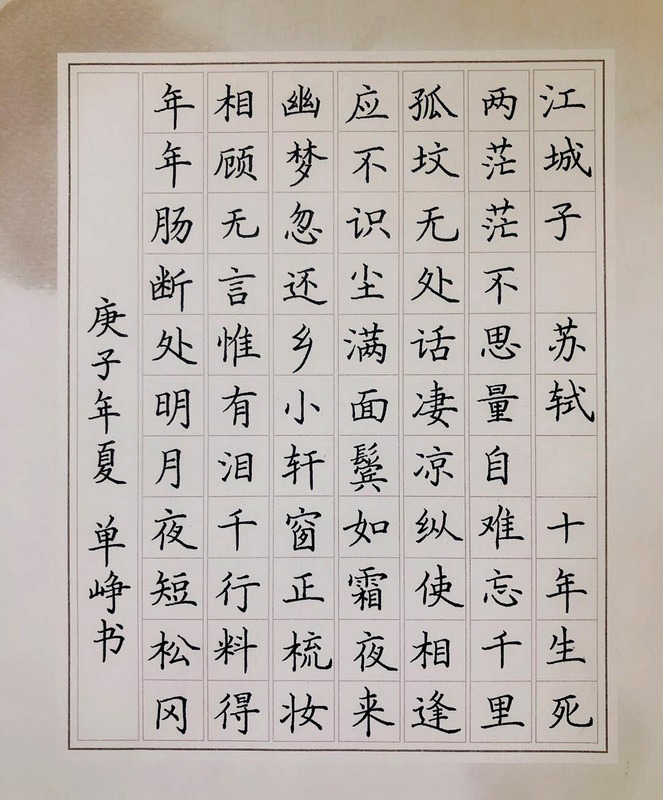 江城子 苏轼 十年生死
两茫茫不思量自难忘千里
孤坟无处话凄凉纵使相逢
应不识尘满面鬓如霜夜来
幽梦忽还乡小轩窗正梳妆
相顾无言惟有泪千行料得
年年肠断处明月夜短松冈
庚子年夏 单峥书